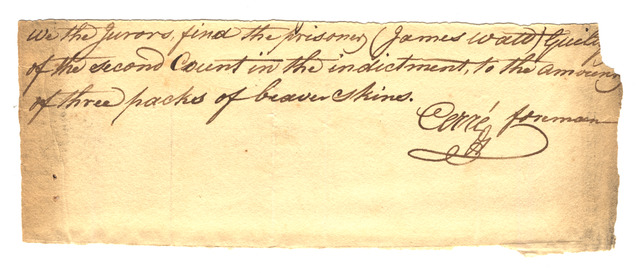 We the Jurors, find the prisoner, (James Ward) Guilty
of the second Count in the indictment, to the amount
of three packs of beaver skins.
Cerré foreman